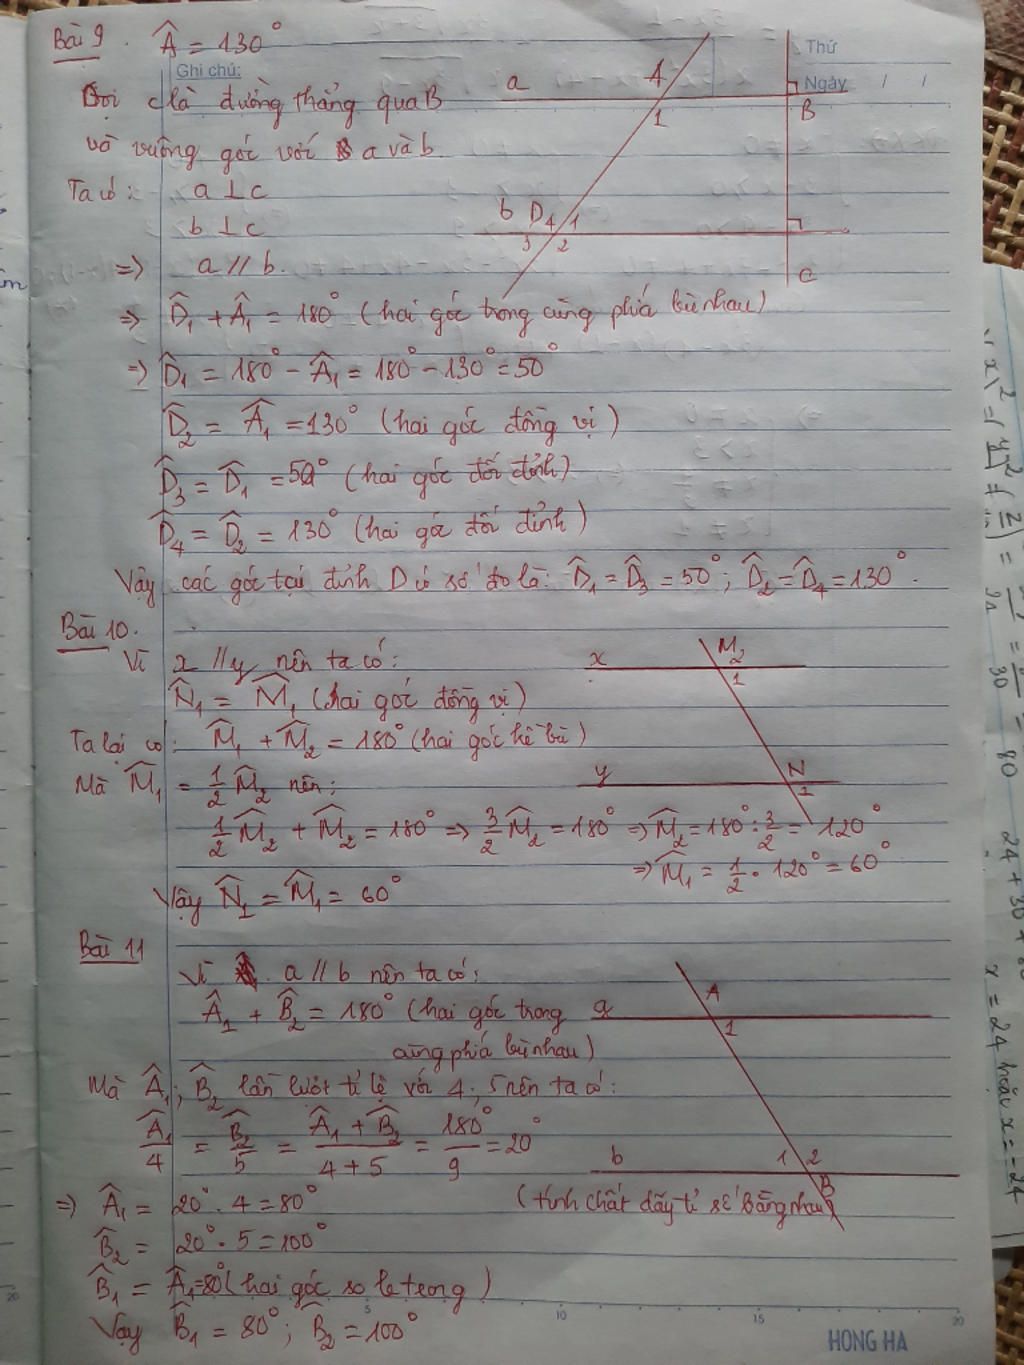 Bài 9. Â = 130°
Thứ
Ghi chú:
Ngày / /
a A 1 B
Gọi c là đường thẳng qua B
và vuông góc với a và b
Ta có: a ⊥ c
b D 4 1 3 2
b ⊥ c
⇒ a // b.
C
⇒ D̂₁ + Â₁ = 180° (hai góc trong cùng phía bù nhau)
⇒ D̂₁ = 180° - Â₁ = 180° - 130° = 50°
D̂₂ = Â₁ = 130° (hai góc đồng vị)
D̂₃ = D̂₁ = 50° (hai góc đối đỉnh)
D̂₄ = D̂₂ = 130° (hai góc đối đỉnh)
Vậy các góc tại đỉnh D có số đo là: D̂₁ = D̂₃ = 50°; D̂₂ = D̂₄ = 130°.
Bài 10.
x M 2 1
Vì x // y nên ta có:
N̂₁ = M̂₁ (hai góc đồng vị)
Ta lại có: M̂₁ + M̂₂ = 180° (hai góc kề bù)
y N 1
Mà M̂₁ = 1/2 M̂₂ nên:
1/2 M̂₂ + M̂₂ = 180° ⇒ 3/2 M̂₂ = 180° ⇒ M̂₂ = 180° : 3/2 = 120°
⇒ M̂₁ = 1/2 . 120° = 60°
Vậy N̂₁ = M̂₁ = 60°
Bài 11
Vì a // b nên ta có:
a A 1
Â₁ + B̂₂ = 180° (hai góc trong
cùng phía bù nhau)
Mà Â₁; B̂₂ lần lượt tỉ lệ với 4; 5 nên ta có:
Â₁/4 = B̂₂/5 = (Â₁ + B̂₂)/(4 + 5) = 180°/9 = 20°
b 1 2 B
(tính chất dãy tỉ số bằng nhau)
⇒ Â₁ = 20° . 4 = 80°
B̂₂ = 20° . 5 = 100°
B̂₁ = Â₁ = 80° (hai góc so le trong)
Vậy B̂₁ = 80°; B̂₂ = 100°
5 10 15 20
HONG HA
24 + 30 +
x = 24 hoặc x = -24